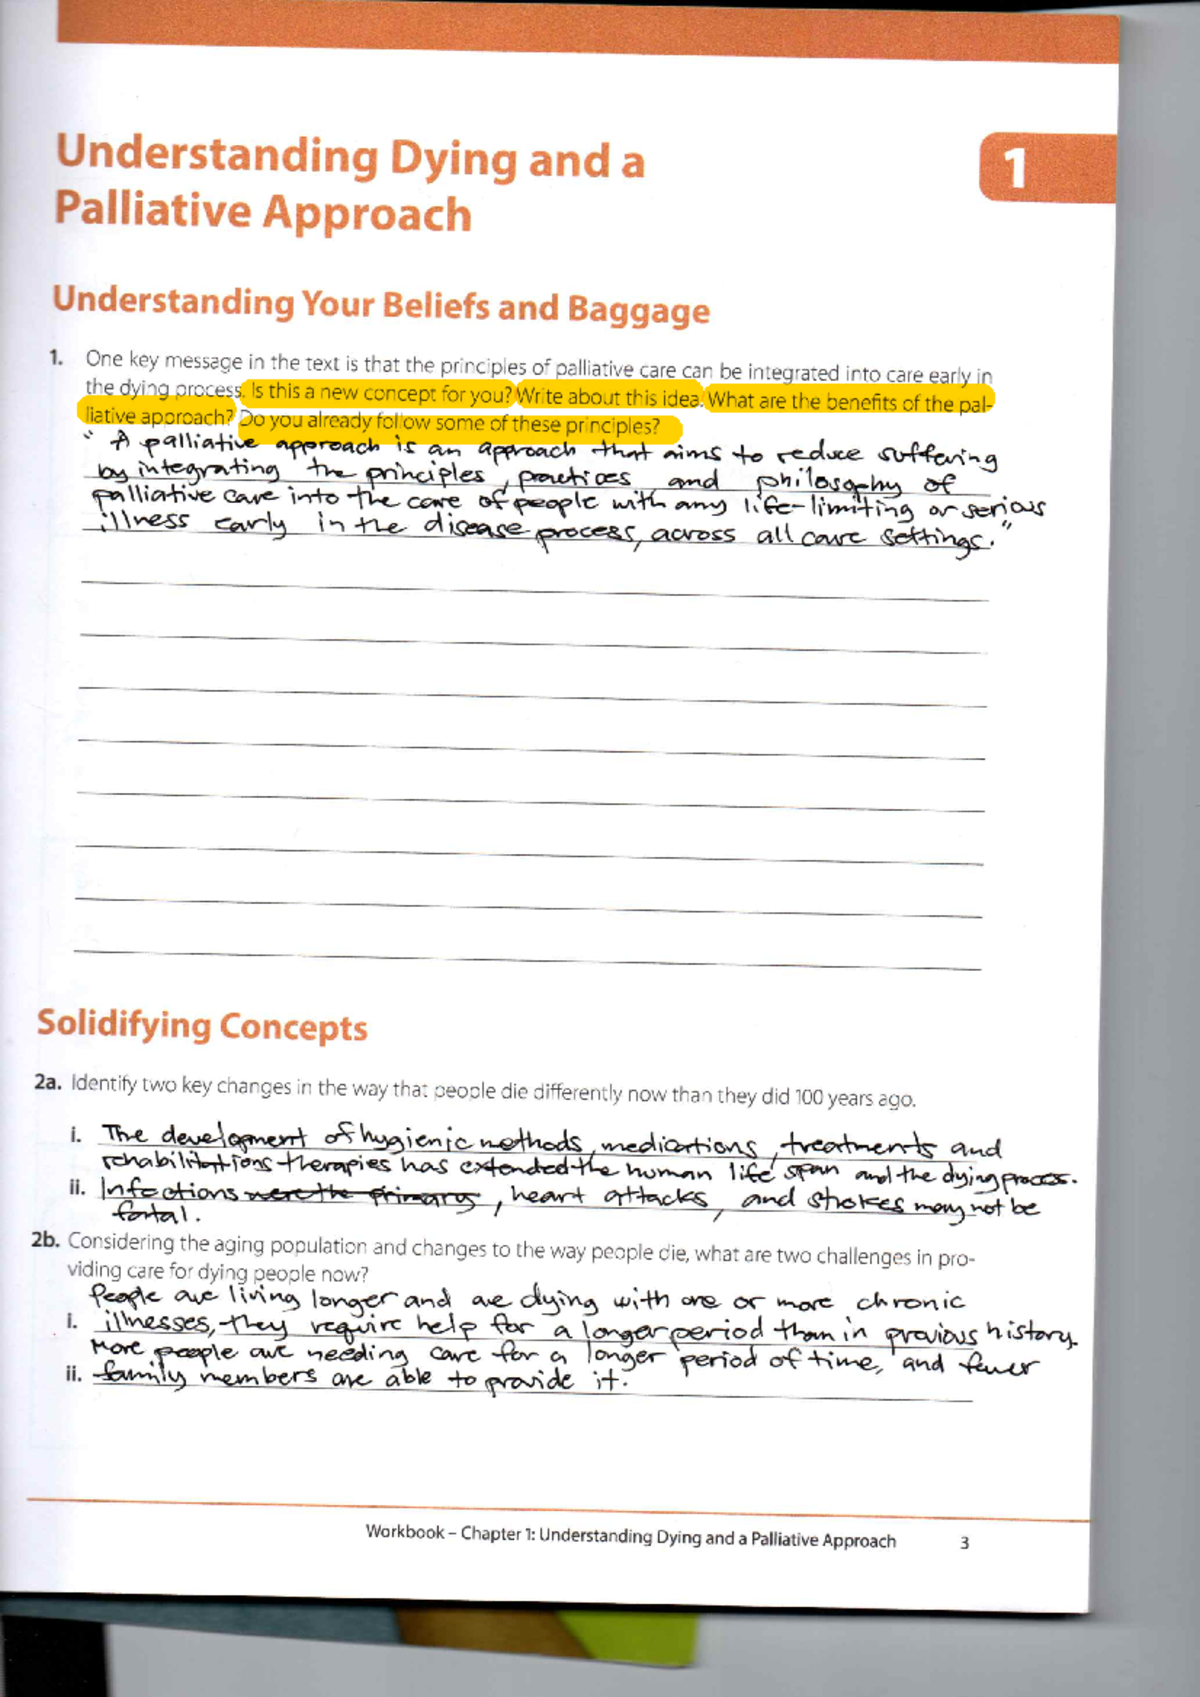 Understanding Dying and a
Palliative Approach
1
Understanding Your Beliefs and Baggage
1. One key message in the text is that the principles of palliative care can be integrated into care early in
the dying process. Is this a new concept for you? Write about this idea. What are the benefits of the pal-
liative approach? Do you already follow some of these principles?
" A palliative approach is an approach that aims to reduce suffering
by integrating the principles, practices, and philosophy of
palliative care into the care of people with any life-limiting or serious
illness early in the disease process, across all care settings."
Solidifying Concepts
2a. Identify two key changes in the way that people die differently now than they did 100 years ago.
i. The development of hygienic methods, medications, treatments and
rehabilitations therapies has extended the human life span and the dying process.
ii. Infections were the primary, heart attacks, and strokes may not be
fatal.
2b. Considering the aging population and changes to the way people die, what are two challenges in pro-
viding care for dying people now?
People are living longer and are dying with one or more chronic
i. illnesses, they require help for a longer period than in previous history.
More people are needing care for a longer period of time, and fewer
ii. family members are able to provide it.
Workbook – Chapter 1: Understanding Dying and a Palliative Approach 3